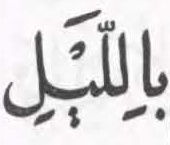 بِاللَّيْلِ